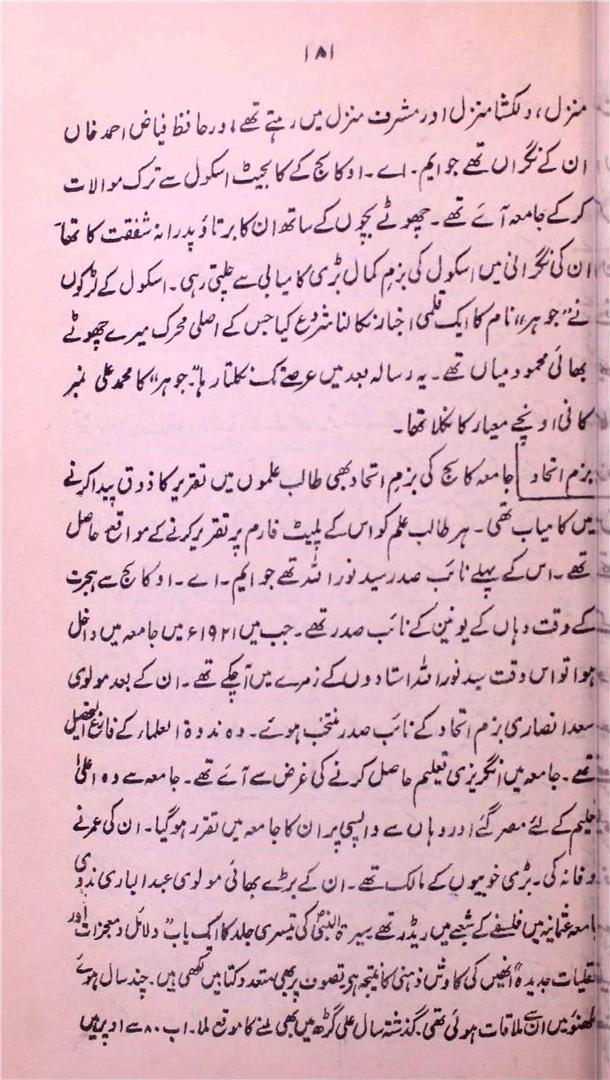 ۱۸۱
منزل، دلکشا منزل اور مشرف منزل میں رہتے تھے، اور حافظ فیاض احمد خاں
ان کے نگراں تھے جو ایم۔اے۔او کالج کے کالجیٹ اسکول سے ترک موالات
کر کے جامعہ آئے تھے۔ چھوٹے بچوں کے ساتھ ان کا برتاؤ پدرانہ شفقت کا تھا۔
ان کی نگرانی میں اسکول کی بزم کمال بڑی کامیابی سے چلتی رہی۔ اسکول کے لڑکوں
نے "جوہر" نام کا ایک قلمی اخبار نکالنا شروع کیا جس کے اصلی محرک میرے چھوٹے
بھائی محمود میاں تھے۔ یہ رسالہ بعد میں عرصے تک نکلتا رہا۔ "جوہر" کا محمد علی نمبر
کافی اونچے معیار کا نکلا تھا۔
بزم اتحاد جامعہ کالج کی بزم اتحاد بھی طالب علموں میں تقریر کا ذوق پیدا کرنے
میں کامیاب تھی۔ ہر طالب علم کو اس کے پلیٹ فارم پر تقریر کرنے کے مواقع حاصل
تھے۔ اس کے پہلے نائب صدر سید نور اللہ تھے جو ایم۔اے۔او کالج سے ہجرت
کے وقت وہاں کے یونین کے نائب صدر تھے۔ جب میں ۱۹۲۱ء میں جامعہ میں داخل
ہوا تو اس وقت سید نور اللہ استادوں کے زمرے میں آچکے تھے۔ ان کے بعد مولوی
سعد انصاری بزم اتحاد کے نائب صدر منتخب ہوئے۔ وہ ندوۃ العلماء کے فارغ التحصیل
تھے۔ جامعہ میں انگریزی تعلیم حاصل کرنے کی غرض سے آئے تھے۔ جامعہ سے وہ اعلیٰ
تعلیم کے لئے مصر گئے اور وہاں سے واپسی پر ان کا جامعہ میں تقرر ہوگیا۔ ان کی عمر نے
وفا نہ کی۔ بڑی خوبیوں کے مالک تھے۔ ان کے بڑے بھائی مولوی عبدالباری ندوی
جامعہ عثمانیہ میں فلسفے کے شعبے میں ریڈر تھے سیرۃ النبیؐ کی تیسری جلد کا ایک باب "دلائل و معجزات اور
عقلیات جدیدہ" انھیں کی کاوش ذہنی کا نتیجہ ہے، تصوف پر بھی متعدد کتابیں لکھی ہیں۔ چند سال ہوئے
لکھنؤ میں ان سے ملاقات ہوئی تھی۔ گذشتہ سال علی گڑھ میں بھی ملنے کا موقع ملا۔ اب ۸۰ سے اوپر ہیں